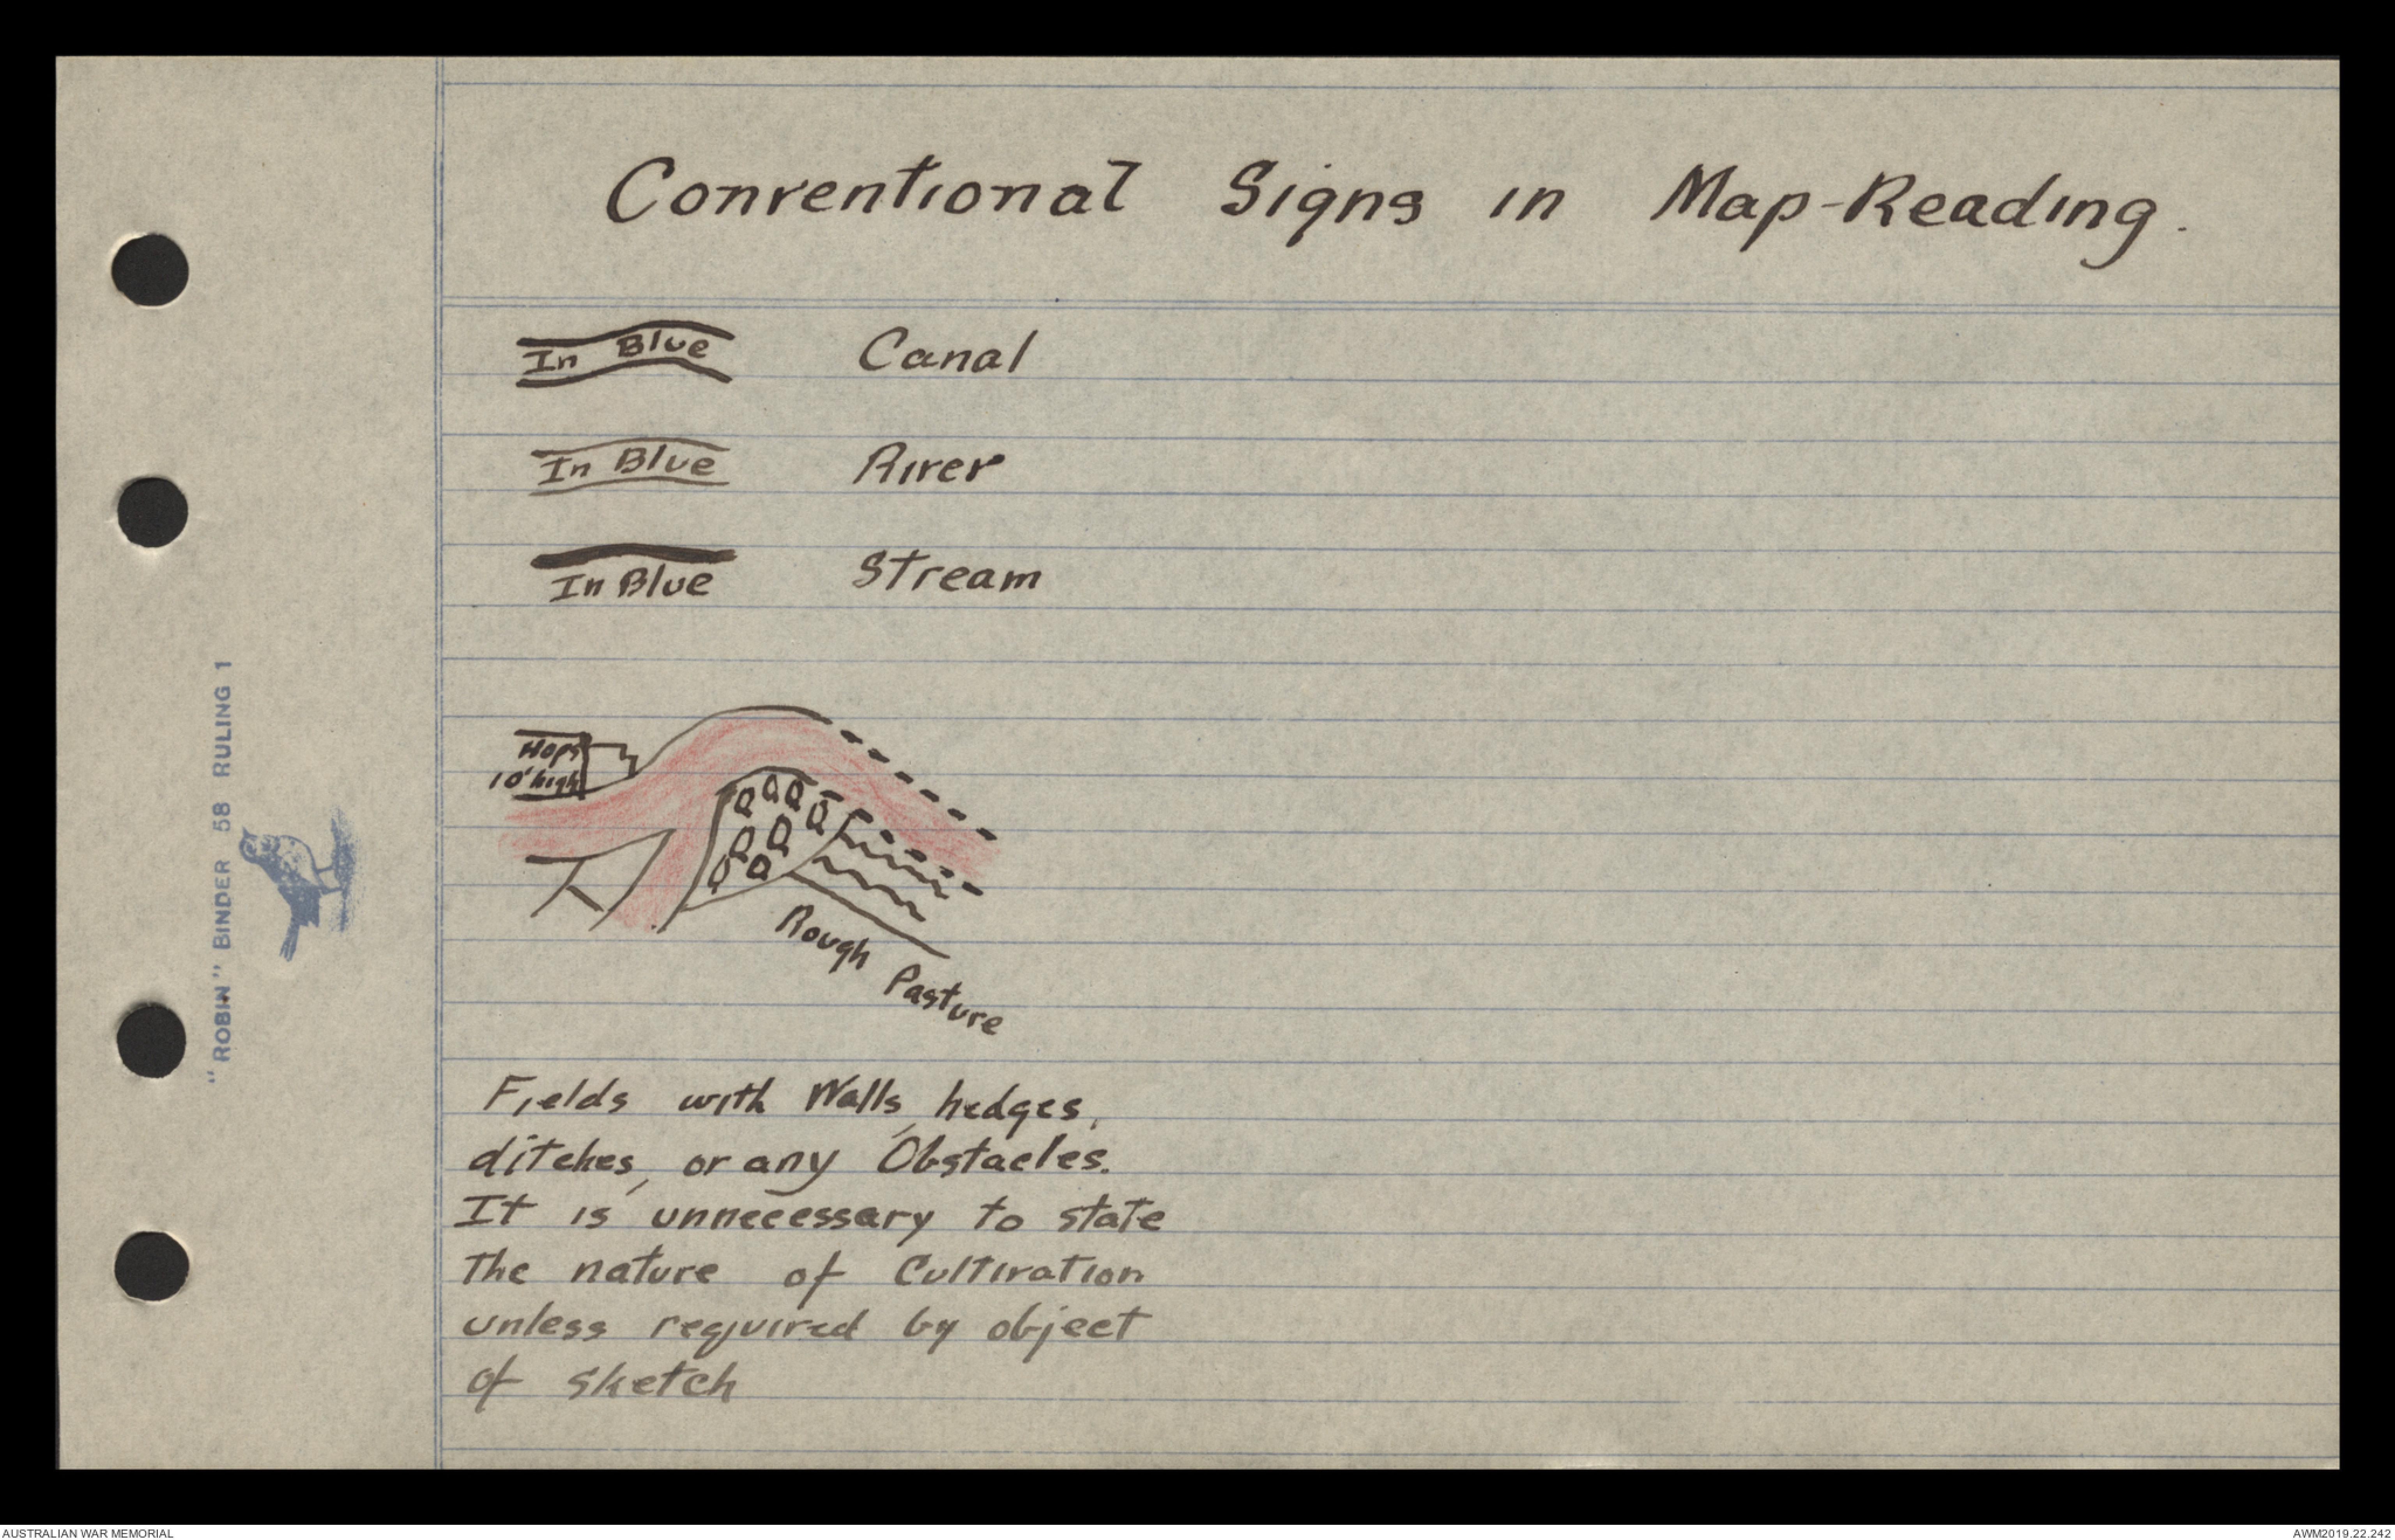 Conventional Signs in Map-Reading.
In Blue Canal
In Blue River
In Blue Stream
Hops
10' high
Rough Pasture
Fields with Walls, hedges,
ditches, or any Obstacles.
It is unnecessary to state
the nature of Cultivation
unless required by object
of sketch
"ROBIN" BINDER 58 RULING 1
AUSTRALIAN WAR MEMORIAL
AWM2019.22.242